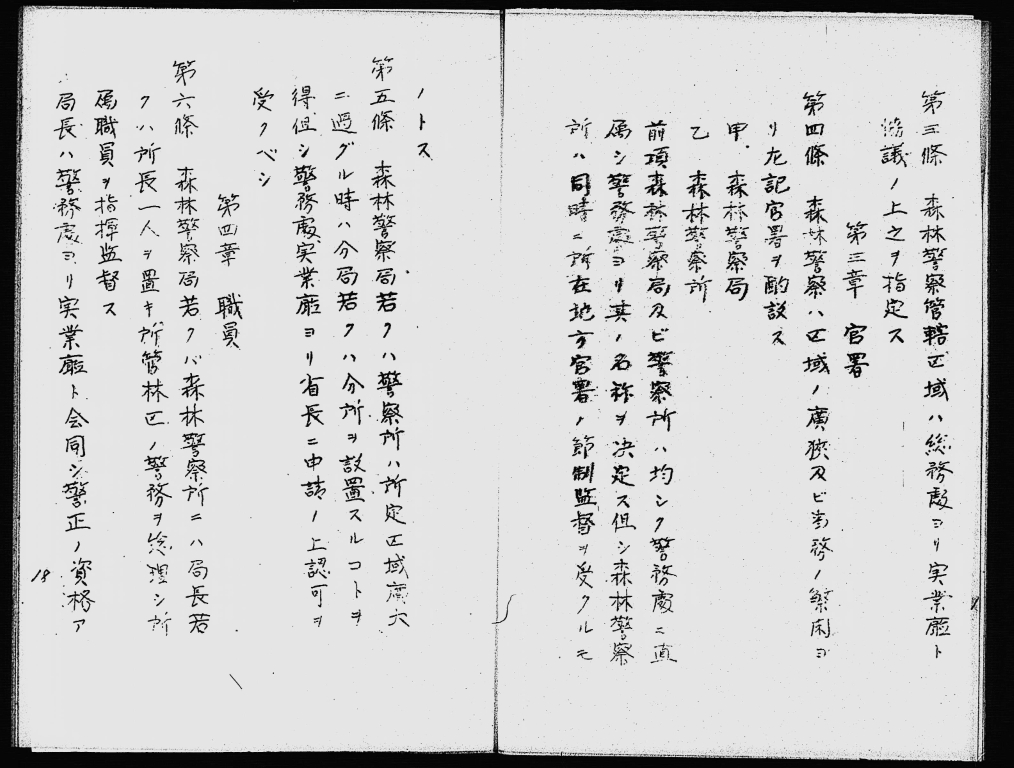 第三條　森林警察管轄区域ハ総務處ヨリ実業廳ト
協議ノ上之ヲ指定ス
第三章　官署
第四條　森林警察ハ区域ノ廣狹及ビ事務ノ繁閑ヨ
リ左記官署ヲ酌設ス
甲.　森林警察局
乙　森林警察所
前項森林警察局及ビ警察所ハ均シク警務處ニ直
属シ警務處ヨリ其ノ名称ヲ决定ス但シ森林警察
所ハ同時ニ所在地方官署ノ節制監督ヲ受クルモ
ノトス
第五條　森林警察局若クハ警察所ハ所定区域廣大
ニ過グル時ハ分局若クハ分所ヲ設置スルコトヲ
得但シ警務處実業廳ヨリ省長ニ申請ノ上認可ヲ
受クベシ
第四章　職員
第六條　森林警察局若クバ森林警察所ニハ局長若
クハ所長一人ヲ置キ所管林区ノ警務ヲ総理シ所
属職員ヲ指揮監督ス
局長ハ警務處ヨリ実業廳ト会同シ警正ノ資格ア
18